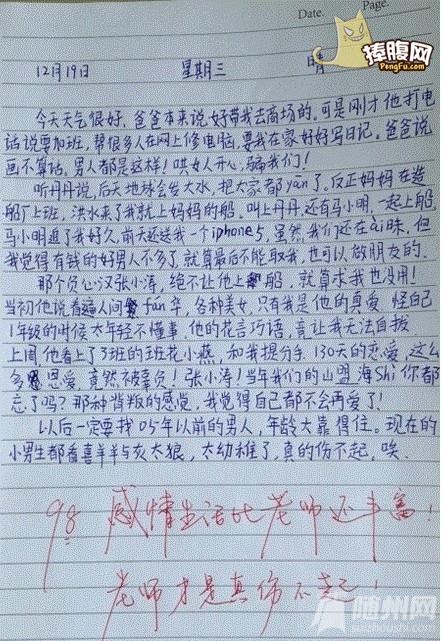 Date.
Page.
捧腹网
PengFu.com
12月19日 星期三 晴
今天天气很好,爸爸本来说好带我去商场的。可是刚才他打电
话说要加班,帮很多人在网上修电脑,要我在家好好写日记。爸爸说
画不算话。男人都是这样!哄女人开心,骗我们!
听丹丹说,后天地球会发大水,把大家都yān了。反正妈妈在造
船厂上班,洪水来了我就上妈妈的船。叫上丹丹,还有马小明,一起上船。
马小明追了我好久,前天还送我一个iphone5,虽然我们还在ai昧,但
我觉得有钱的好男人不多了,就算最后不能取我,也可以做朋友的。
那个负心汉张小涛,绝不让他上船,就算求我也没用!
当初他说看遍人间fán华,各种美女,只有我是他的真爱,怪自己
1年级的时候太年轻不懂事,他的花言巧语,竟让我无法自拔
上周他看上了3班的班花小燕,和我提分手,130天的恋爱,这么
多恩爱,竟然被辜负!张小涛!当年我们的山盟海Shi你都
忘了吗?那种背叛的感觉,我觉得自己都不会再爱了!
以后一定要找05年以前的男人,年龄大靠得住。现在的
小男生都看喜羊羊与灰太狼,太幼稚了,真的伤不起,唉.
98 感情生活比老师还丰富!
老师才是真伤不起!
随州网
suizhoushi.com